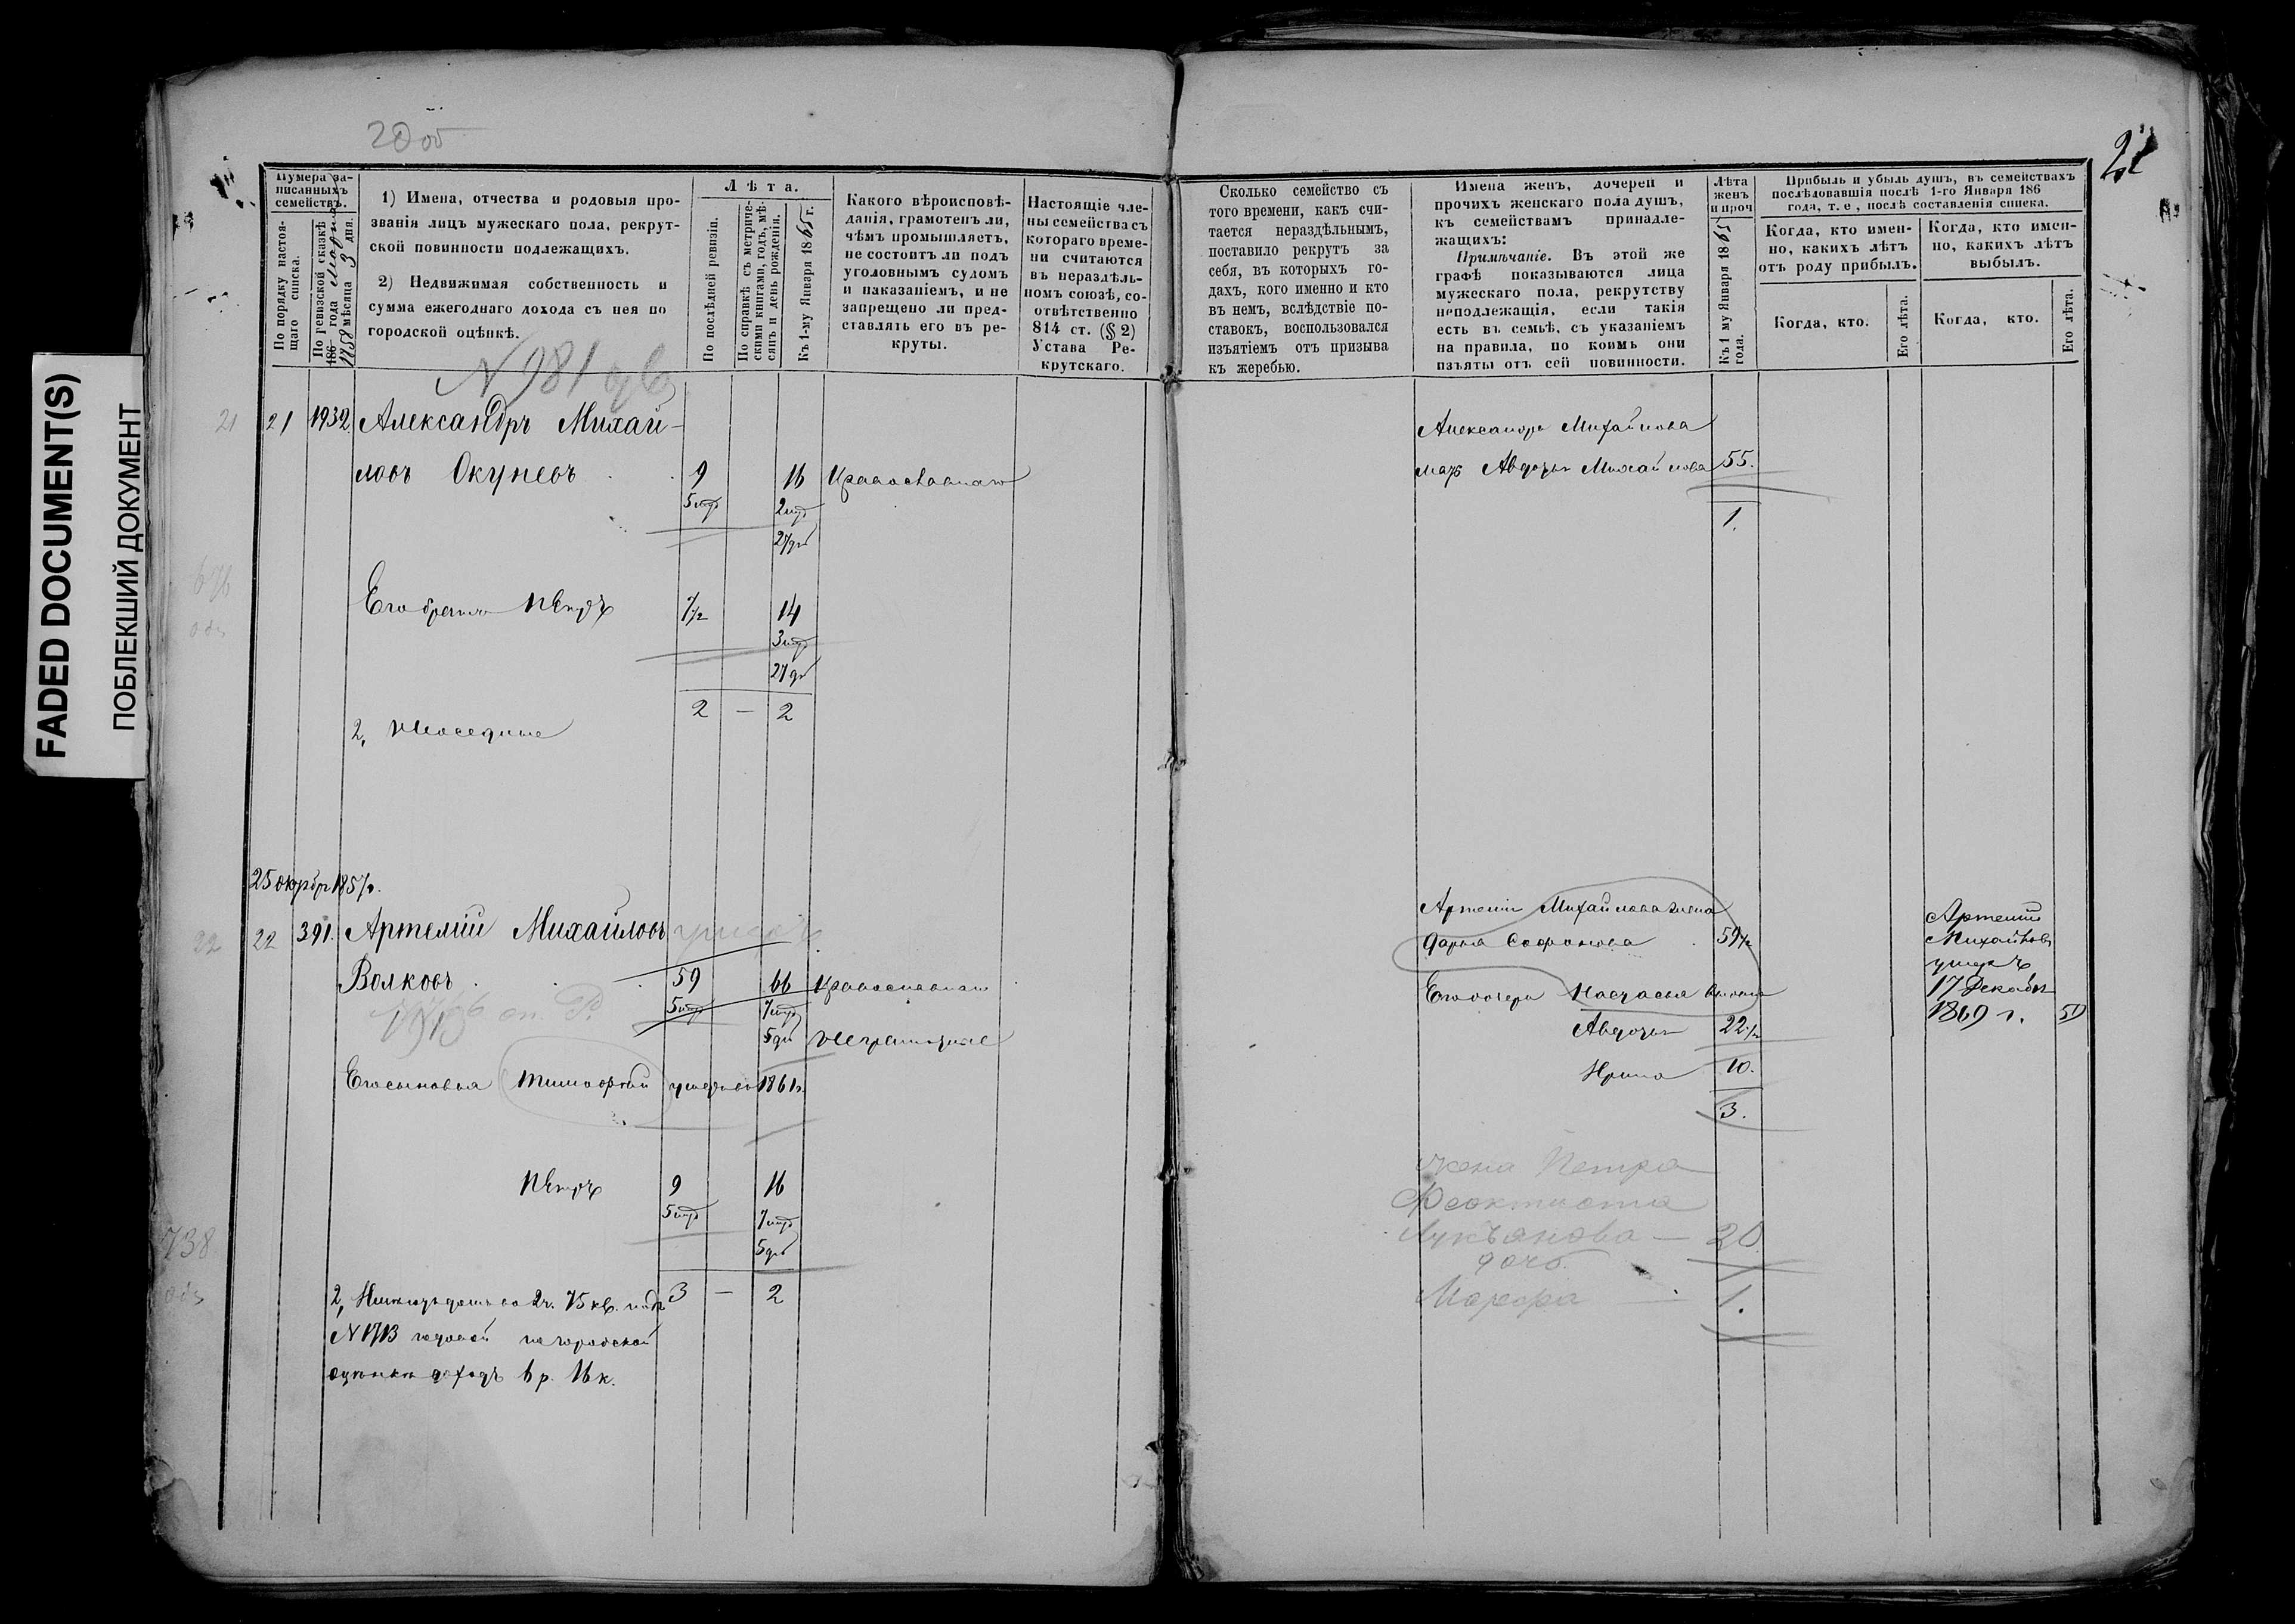 FADED DOCUMENT(S)
ПОБЛЕКШИЙ ДОКУМЕНТ
20 об
Нумера за-
писанныхъ
семействъ.
По порядку настоя-
щаго списка.
По ревизской сказкѣ
186 года Марта
1858 мѣсяца 3 дня.
1) Имена, отчества и родовыя про-
званія лицъ мужескаго пола, рекрут-
ской повинности подлежащихъ.
2) Недвижимая собственность и
сумма ежегоднаго дохода съ нея по
городской оцѣнкѣ.
Лѣта.
По послѣдней ревизіи.
По справкѣ съ метриче-
скими книгами, годъ, мѣ-
сяцъ и день рожденія.
Къ 1-му Января 1865 г.
Какого вѣроисповѣ-
данія, грамотенъ ли,
чѣмъ промышляетъ,
не состоитъ ли подъ
уголовнымъ судомъ
и наказаніемъ, и не
запрещено ли пред-
ставлять его въ ре-
круты.
Настоящіе чле-
ны семейства съ
котораго време-
ни считаются
въ нераздѣль-
номъ союзѣ, со-
отвѣтственно
814 ст. (§ 2)
Устава Ре-
крутскаго.
N 981
21 21 1932 Александръ Михай-
ловъ Окуневъ 9 16 Православнаго
5 мцв 2 мцв
27 дн
Его братъ Петръ 7 1/2 14
3 мцв
27 дн
2 — 2
2,
25 октября 1857 г.
22 22 391. Артемій Михайловъ
Волковъ 59 66 Православнаго
5 мцв 7 мцв
5 дн Неграмотные
Его сыновья Тимофей умеръ въ 1861 г.
Петръ 9 16
5 мцв 7 мцв
5 дн
738
3 — 2
2, Имѣютъ домъ во 2 ч. 75 кв. подъ
N 1713 годовой по городской
оцѣнкѣ доходъ 6 р. 16 к.
Сколько семейство съ
того времени, какъ счи-
тается нераздѣльнымъ,
поставило рекрутъ за
себя, въ которыхъ го-
дахъ, кого именно и кто
въ немъ, вслѣдствіе по-
ставокъ, воспользовался
изъятіемъ отъ призыва
къ жеребью.
Имена женъ, дочерей и
прочихъ женскаго пола душъ,
къ семействамъ принадле-
жащихъ:
Примѣчаніе. Въ этой же
графѣ показываются лица
мужескаго пола, рекрутству
неподлежащія, если такія
есть въ семьѣ, съ указаніемъ
на правила, по коимъ они
изъяты отъ сей повинности.
Лѣта
женъ
и проч
Къ 1 му Января 1865
года.
Прибыль и убыль душъ, въ семействахъ
послѣдовавшія послѣ 1-го Января 186
года, т. е., послѣ составленія списка.
Когда, кто имен-
но, какихъ лѣтъ
отъ роду прибылъ.
Когда, кто имен-
но, какихъ лѣтъ
выбылъ.
Когда, кто.
Его лѣта.
Когда, кто.
Его лѣта.
Александра Михайлова
мать Авдотья Михайлова 55.
1.
Артемія Михайлова жена
Дарья Софонова 59 1/2
Его дочери Настасья
Авдотья 22 1/2
Ирина 10.
3.
Артемій
Михайловъ
умеръ
17 Декабря
1869 г.
жена Петра
Феоктиста
Лукьянова — 20
дочь
Марфа — 1.